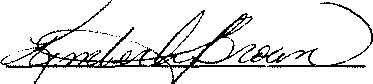 Kimberly Brown